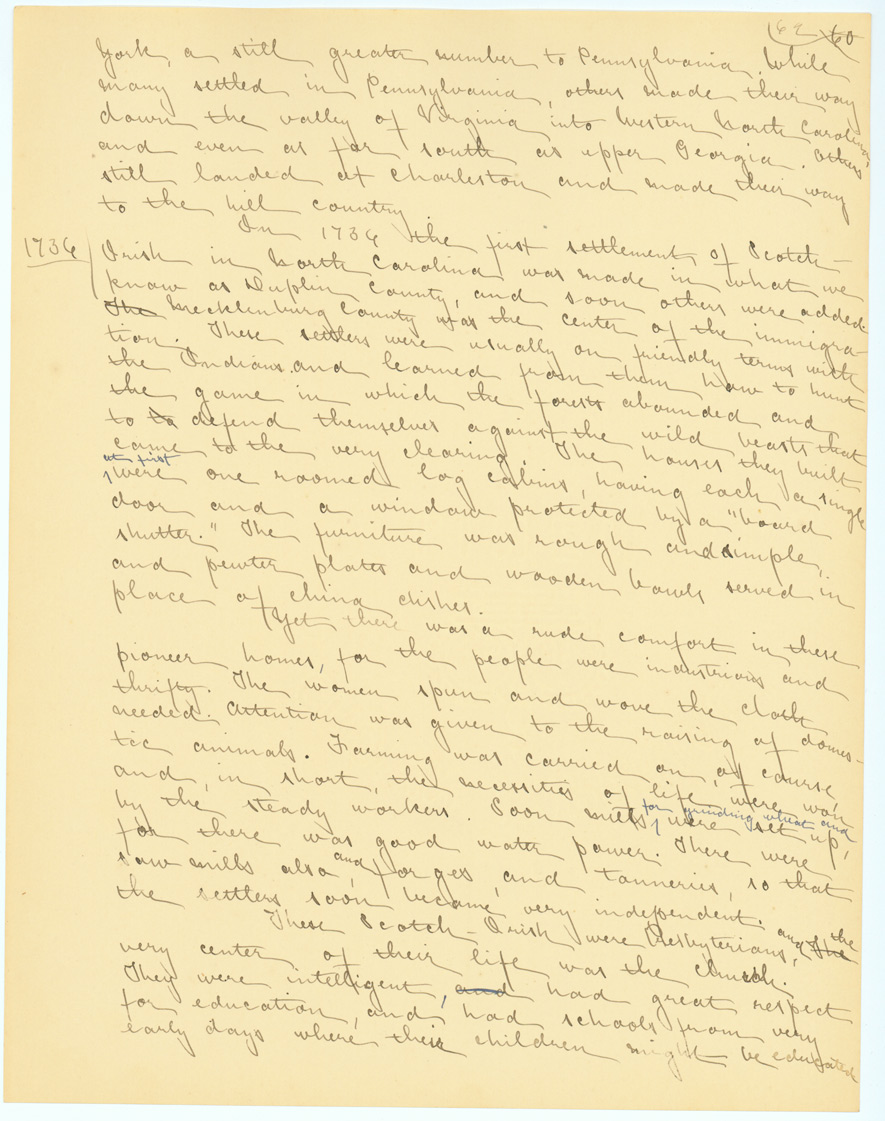 62 60
York, a still greater number to Pennsylvania. While
many settled in Pennsylvania, others made their way
down the valley of Virginia into Western North Carolina,
and even as far south as upper Georgia. Others
still landed at Charleston and made their way
to the hill country
1736 In 1736 the first settlement of Scotch-
Irish in North Carolina was made in what we
know as Duplin County, and soon others were added.
The Mecklenburg County was the center of the immigra-
tion. These settlers were usually on friendly terms with
the Indians and learned from them how to hunt
the game in which the forests abounded and
to to defend themselves against the wild beasts that
came to the very clearing. The houses they built
at first were one roomed log cabins, having each a single
door and a window protected by a "board
shutter." The furniture was rough and simple,
and pewter plates and wooden bowls served in
place of china dishes.
Yet there was a rude comfort in these
pioneer homes, for the people were industrious and
thrifty. The women spun and wove the cloth
needed. Attention was given to the raising of domes-
tic animals. Farming was carried on, of course,
and, in short, the necessities of life, were won
by the steady workers. Soon mills for grinding wheat and were set up,
for there was good water power. There were
saw mills also, and forges, and tanneries, so that
the settlers soon became very independent.
These Scotch-Irish were Presbyterians, and the The
very center of their life was the church.
They were intelligent, and had great respect
for education, and had schools from very
early days where their children might be educated